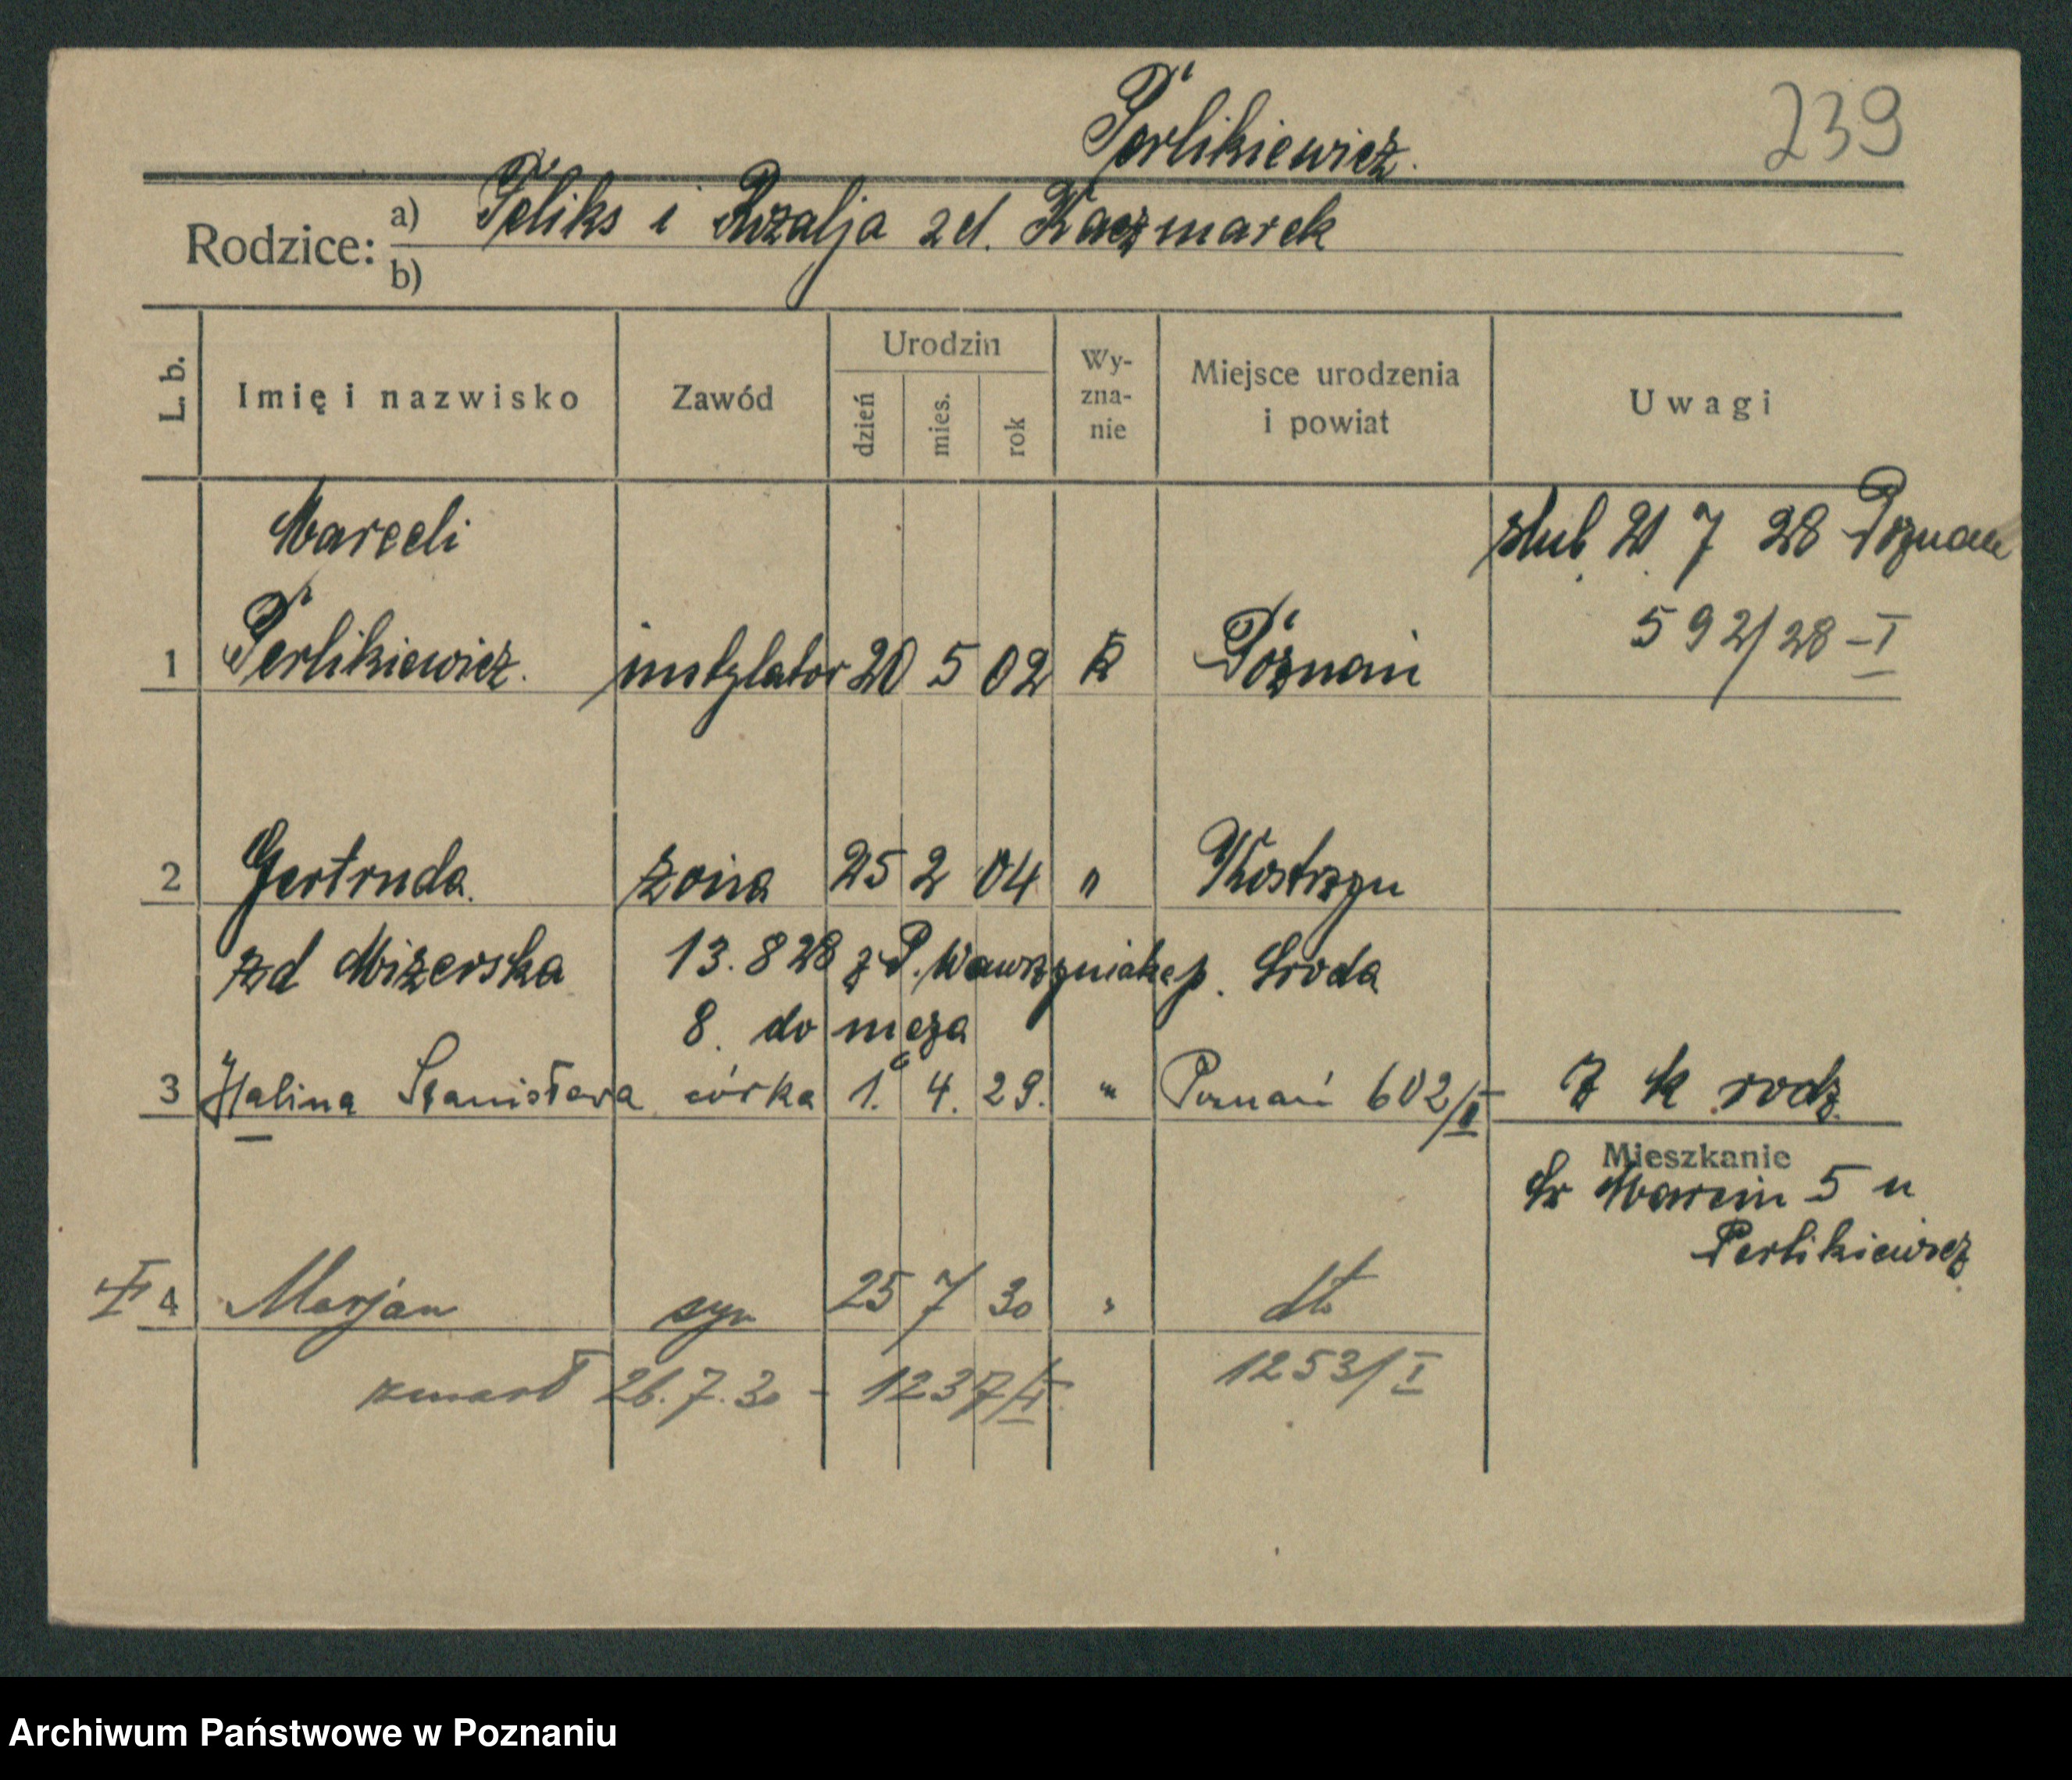 Perlikiewicz.
239
Rodzice: a) Feliks i Rozalja zd. Kaczmarek
b)
L. b.
Imię i nazwisko
Zawód
Urodzin
dzień
mies.
rok
Wy-
zna-
nie
Miejsce urodzenia
i powiat
Uwagi
Marceli
ślub 21 7 28 Poznań
592/28 - I
1 Perlikiewicz. instalator 20 5 02 k Poznań
2 Gertruda żona 25 2 04 " Kostrzyn
zd Mizerska 13. 8 28 z P. Wawrzyniaka p. Środa
8. do męża
3 Halina Stanisława córka 1. 4. 29. " Poznań 602/II 7 k rodz
Mieszkanie
Św Marcin 5 u
Perlikiewicz
4 Marjan syn 25 7 30 " dto
zmarł 26.7.30 - 1237/II 1253/I
Archiwum Państwowe w Poznaniu